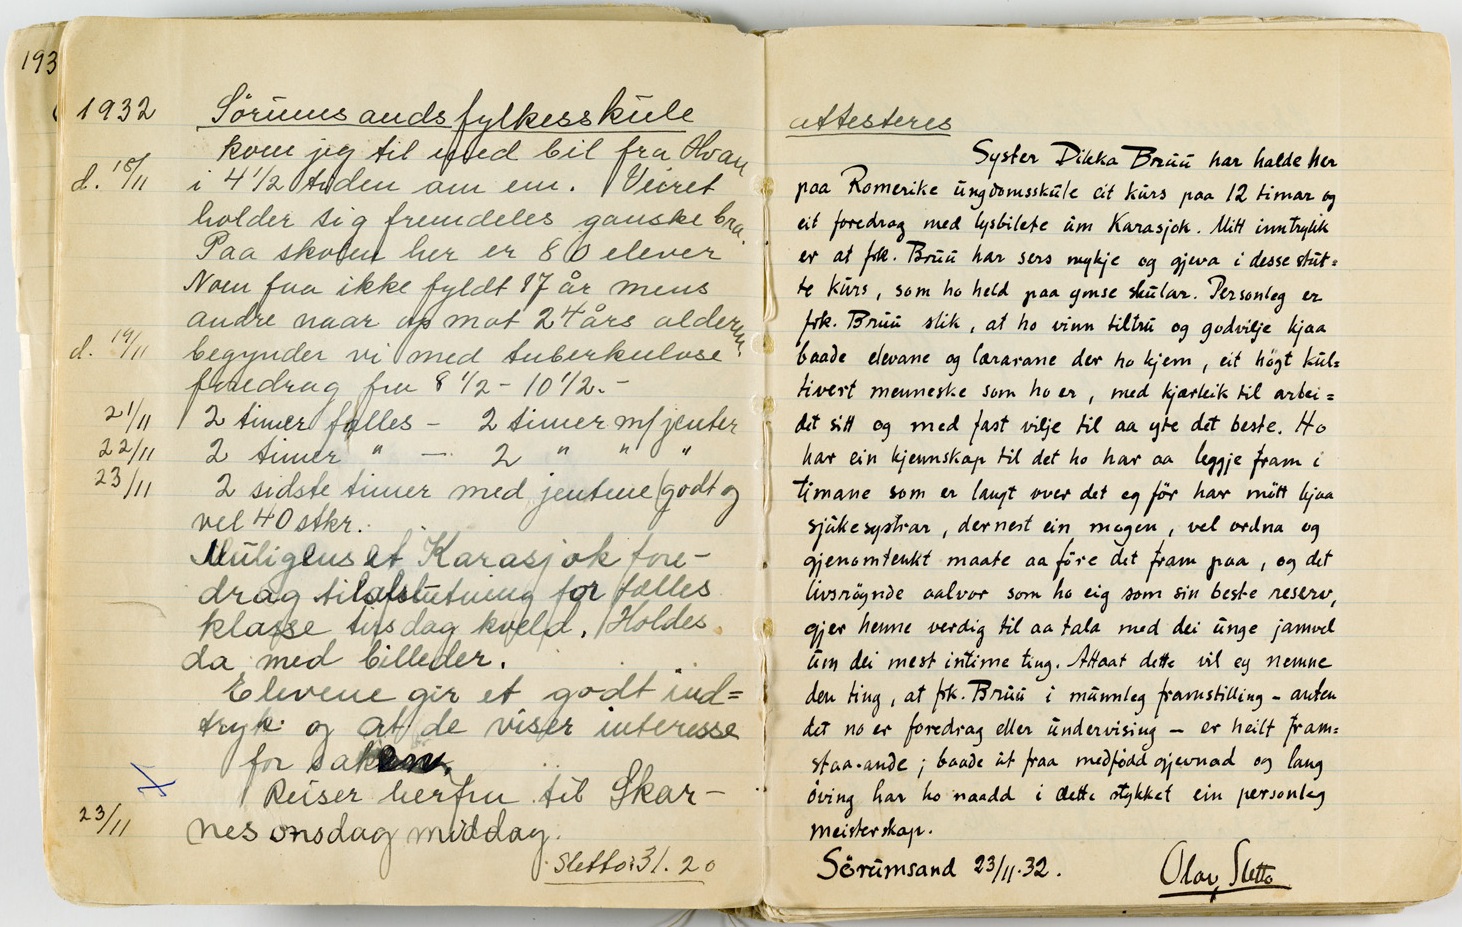 193
1932 Sörumsands fylkesskule
kom jeg til med bil fra Hvam
d. 18/11 i 4 1/2 tiden om em. Veiret
holder sig fremdeles ganske bra.
Paa skolen her er 80 elever
Noen faa ikke fyldt 17 år mens
andre naar op mot 24 års alderen.
d. 19/11 begynder vi med tuberkulose
foredrag fra 8 1/2 - 10 1/2. -
21/11 2 timer fælles - 2 timer m/ jenter
22/11 2 timer " - 2 " " "
23/11 2 sidste timer med jentene (godt og
vel 40 stkr.
Muligens et Karasjok fore-
drag til afslutning for fælles
klasse tirsdag kveld. Holdes
da med billeder.
Elevene gir et godt ind=
tryk og at de viser interesse
for saken.
Reiser herfra til Skar-
23/11 nes onsdag middag.
Sletto: 31. 20
Attesteres
Syster Dikka Bruu har halde her
paa Romerike ungdomsskule eit kurs paa 12 timar og
eit foredrag med lysbilete um Karasjok. Mitt inntrykk
er at frk. Bruu har sers mykje og gjeva i desse stut=
te kurs, som ho held paa ymse skular. Personleg er
frk. Bruu slik, at ho vinn tiltru og godvilje hjaa
baade elevane og lærarane der ho kjem, eit högt kul=
tivert menneske som ho er, med kjærleik til arbei=
det sitt og med fast vilje til aa yte det beste. Ho
har ein kjennskap til det ho har aa leggje fram i
timane som er langt over det eg för har mött hjaa
sjukesystrar, dernest ein mogen, vel ordna og
gjenomtenkt maate aa före det fram paa, og det
livsröynde aalvor som ho eig som sin beste reserv,
gjer henne verdig til aa tala med dei unge jamvel
um dei mest intime ting. Attaat dette vil eg nemne
den ting, at frk. Bruu i munnleg framstilling - anten
det no er foredrag eller undervising - er heilt fram=
staa-ande; baade ut fraa medfödd gjevnad og lang
öving har ho naadd i dette stykket ein personleg
meisterskap.
Sörumsand 23/11.32. Olav Sletto